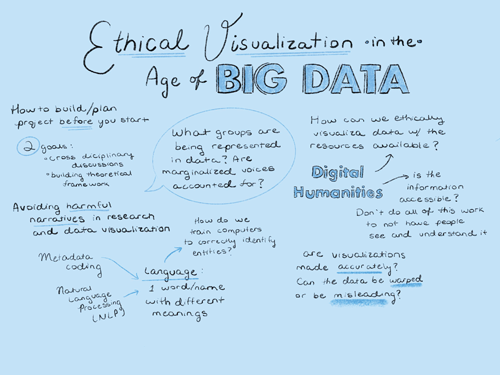 Ethical Visualization in the
Age of BIG DATA
How to build/plan
project before you start
2 goals:
• cross disciplinary
discussions
• building theoretical
framework
Avoiding harmful
narratives in research
and data visualization
Metadata
coding
Natural
Language
Processing
(NLP)
Language:
1 word/name
with different
meanings
How do we
train computers
to correctly identify
entities?
What groups are
being represented
in data? Are
marginalized voices
accounted for?
How can we ethically
visualize data w/ the
resources available?
Digital
Humanities
is the
information
accessible?
Don't do all of this work
to not have people
see and understand it
are visualizations
made accurately?
Can the data be warped
or be misleading?